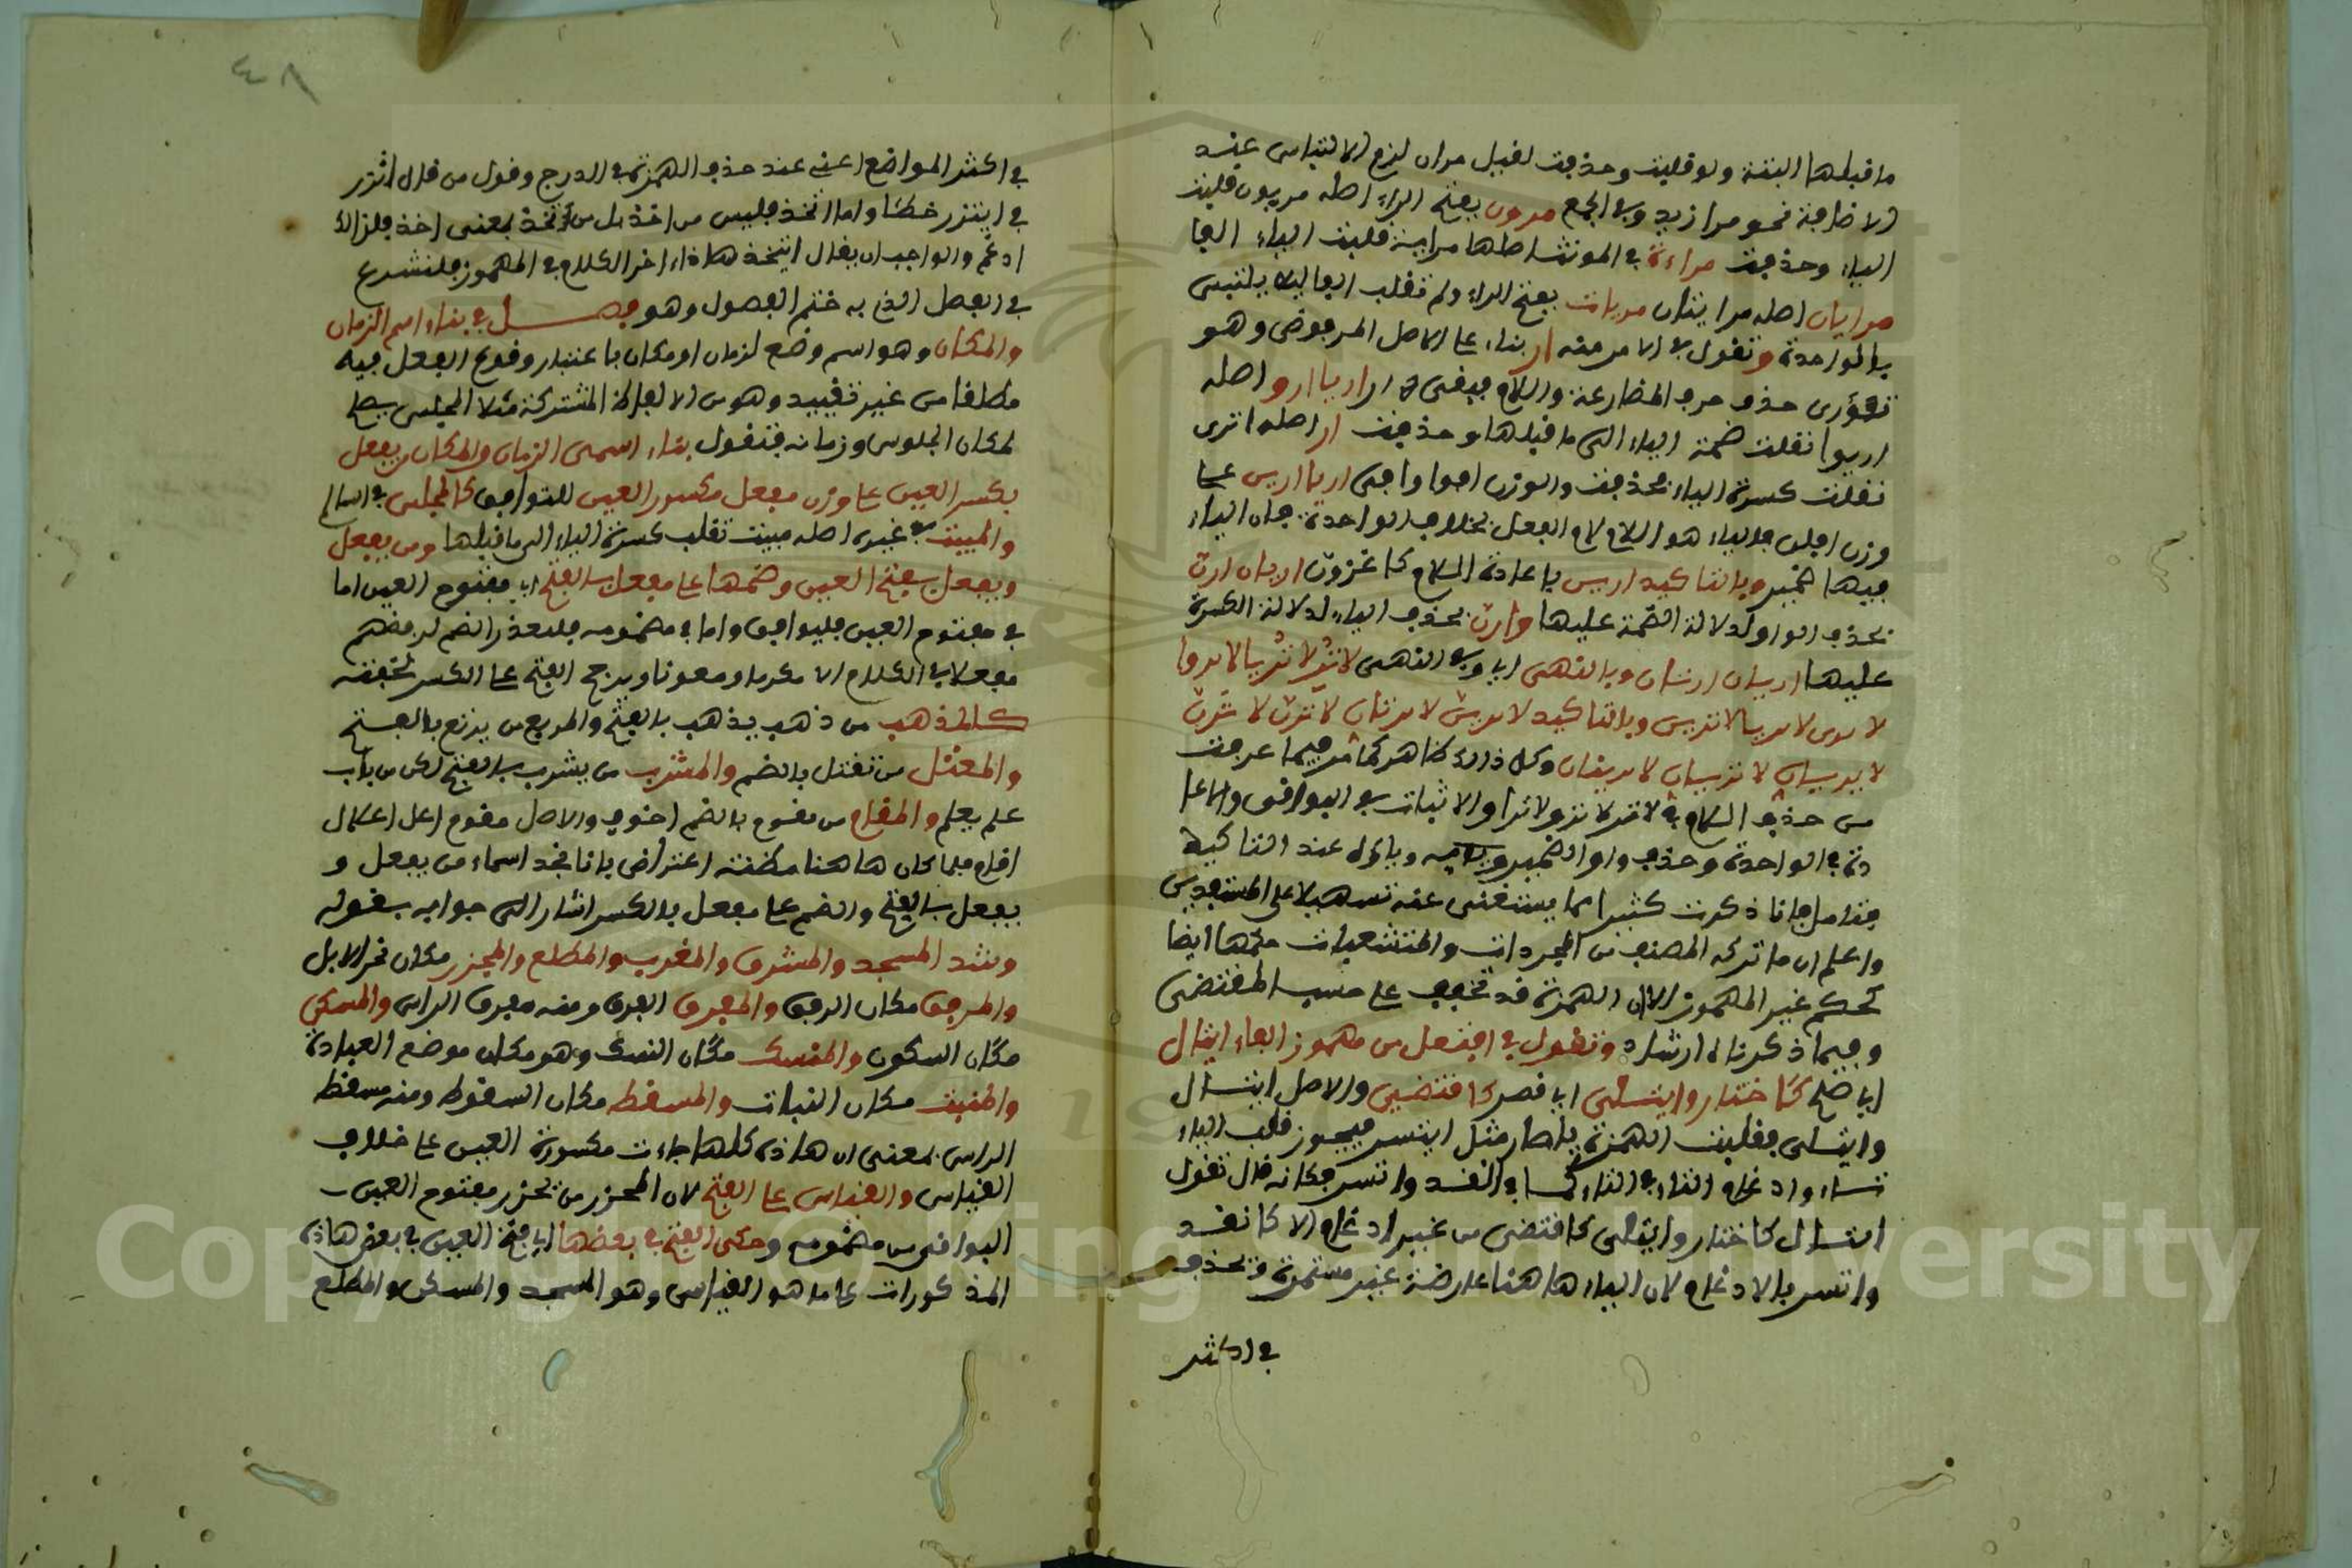 ما قبلها البتة ولو قلبت وحذفت لقيل مران لزم الالتباس عند
الاضافة نحو مرا زيد وفي الجمع مرون بفتح الراء اصله مريون قلبت
الياء وحذفت مراءة في المونث اصلها مراية قلبت الياء الفا
مرايان اصله مرايتان مريات بفتح الراء ولم تقلب الفا ليلا يلتبس
بالواحدة وتقول في الامر منه ار بناء على الاصل المرفوض وهو
حذف حرف المضارعة واللام فبقى ار اريا اروا اصله
اريوا نقلت ضمة الياء الى ما قبلها وحذفت ار اصله
نقلت كسرة الياء فحذفت والوزن افوا وافى اريا ارين على
وزن افلن فالياء هو اللام لام الفعل بخلاف الواحدة فان الياء
فيها ضمير وبالتاكيد ارين باعادة اللام كاغزون اريان ارن
بحذف الواو لدلالة الضمة عليها وارن بحذف الياء لدلالة الكسرة
عليها اريان ارينان وبالنهى اي وفي النهى لا تر لا تريا لا تروا
لا ترى لا تريا لا ترين وبالتاكيد لا ترين لا تريان لا ترن لا ترن
لا تريان لا ترينان وكل ذالك ظاهر كما مر فيما عرفت
من حذف اللام في لا تر لا ترو لا ترا والاثبات في البواقى والاعا
دة في الواحدة وحذف واو الضمير ويايه عند التاكيد
فتامل فانا ذكرت كثيرا مما يستغنى عنه تسهيلا على المستفيدين
واعلم ان ما تركه المصنف من المجردات والمتشعبات حكمها ايضا
كحكم غير المهموز الا ان الهمزة قد تخفف على حسب المقتضى
وفيما ذكرناه ارشاد وتقول في افتعل من مهموز الفاء ايتال
اي اصلح كاختار وايتلى اي قصر كاقتضى والاصل ائتال
وائتلى فقلبت الهمزة ياء صار مثل ايتسر فيجوز قلب الياء
تاء وادغام التاء في التاء كما في اتعد واتسر فكانه قال تقول
ايتال كاختار وايتلى كاقتضى من غير ادغام لا كاتعد
واتسر بالادغام لان الياء هاهنا عارضة غير مستمرة وتحذف
في اكثر
٤٨
في اكثر المواضع اعنى عند حذف الهمزة في الدرج وقول من قال اتزر
في ايتزر خطا واما اتخذ فليس من اخذ بل من تخذ بمعنى اخذ فلذالك
ادغم والواجب ان يقال ايتخذ هاذا اخر الكلام في المهموز فلنشرع
في الفصل الذي به ختم الفصول وهو فصل في بناء اسم الزمان
والمكان وهو اسم وضع لزمان او مكان باعتبار وقوع الفعل فيه
مطلقا من غير تقييد وهو من الالفاظ المشتركة مثلا المجلس يصلح
لمكان الجلوس وزمانه فنقول بناء اسمى الزمان والمكان من يفعل
بكسر العين على وزن مفعل مكسور العين للتوافق كالمجلس في السالم
والمبيت في غيره اصله مبيت نقلت كسرة الياء الى ما قبلها ومن يفعل
ويفعل بفتح العين وضمها على مفعل بالفتح اي مفتوح العين اما
في مفتوح العين فللتوافق واما في مضمومه فلتعذر الضم لرفضهم
مفعلا في الكلام الا مكرما ومعونا ويرجح الفتح على الكسر لخفته
كالمذهب من ذهب يذهب بالفتح والمربع من يربع بالفتح
والمقتل من تقتل بالضم والمشرب من يشرب بالفتح لكن من باب
علم يعلم والمقام من يقوم بالضم اجوف والاصل مقوم اعل اعلال
اقام فلما كان هاهنا مظنة اعتراض بانا نجد اسماء من يفعل و
يفعل بالفتح والضم على مفعل بالكسر اشار الى جوابه بقوله
وشذ المسجد والمشرق والمغرب والمطلع والمجزر مكان نحر الابل
والمرفق مكان الرفق والمفرق الفرق ومنه مفرق الراس والمسكن
مكان السكون والمنسك مكان النسك وهو مكان موضع العبادة
والمنبت مكان النبات والمسقط مكان السقوط ومنه مسقط
الراس بمعنى ان هاذه كلها جاءت مكسورة العين على خلاف
القياس والقياس على الفتح لان المجزر من يجزر مفتوح العين
البواقى من مضمومه وحكى الفتح في بعضها اي فتح العين في بعض هاذه
المذكورات على ما هو القياس وهو المسجد والمسكن والمطلع
Copyright © King Saud University